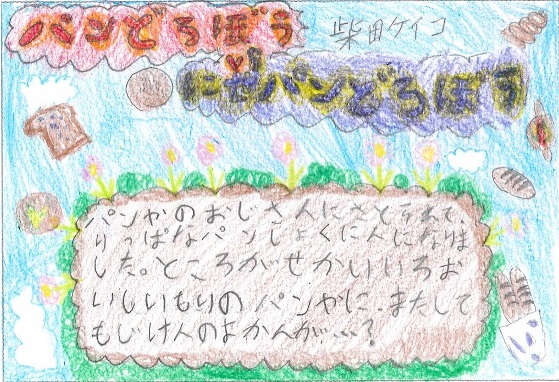 パンどろぼう
柴田ケイコ
にせパンどろぼう
パンやのおじさんにさとうれて、
りっぱなパンしょくにんになりま
した。ところがせかいいちお
いしいもりのパンやに、またして
もじけんのよかんが…?